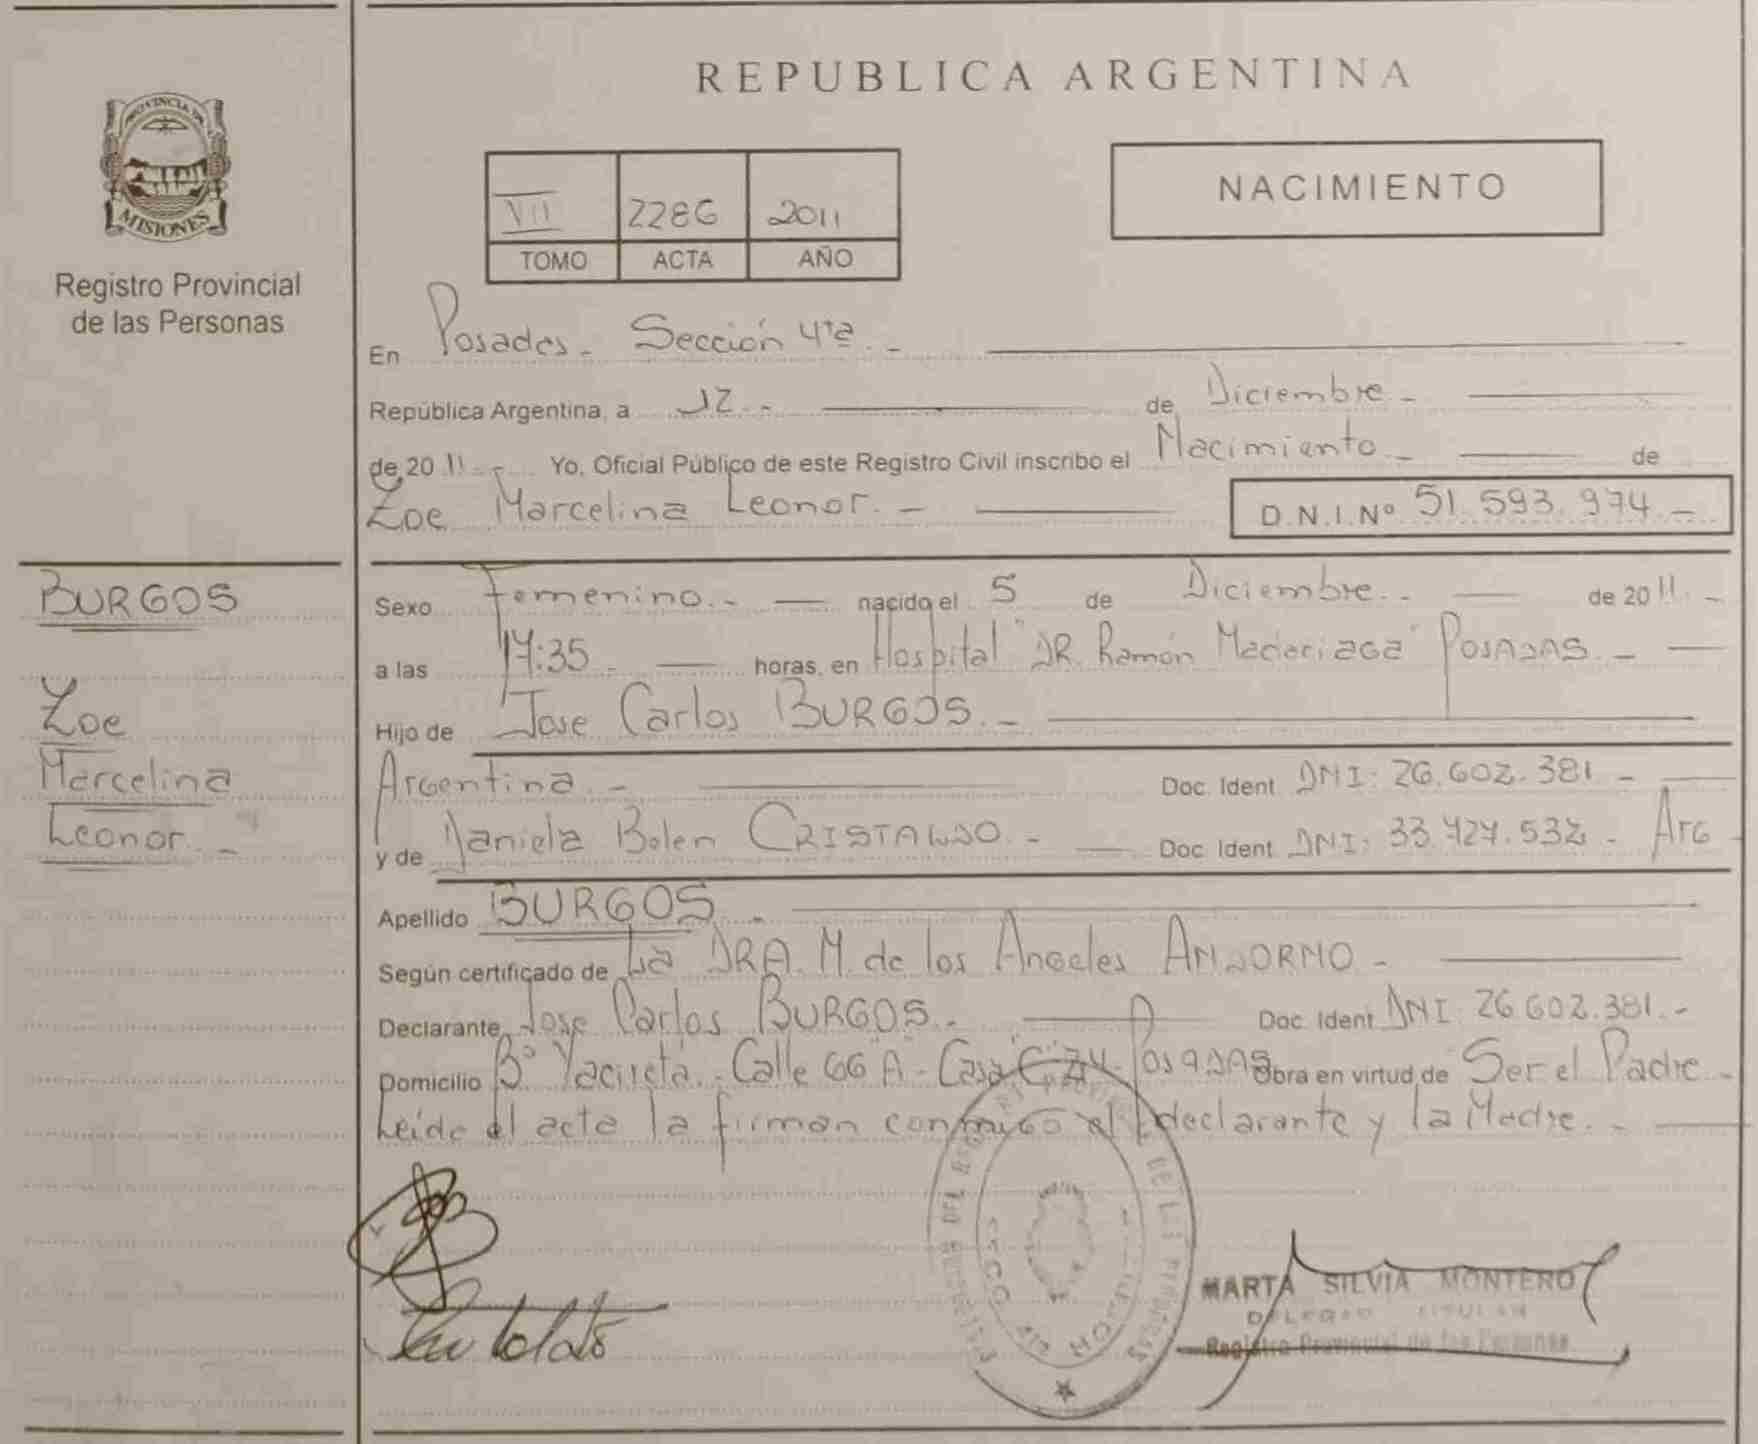 PROVINCIA DE
MISIONES
Registro Provincial
de las Personas
BURGOS
Zoe
Marcelina
Leonor.-
REPUBLICA ARGENTINA
VII 2286 2011
TOMO ACTA AÑO
NACIMIENTO
En Posadas.- Sección 4ta.-
República Argentina, a 12.- de Diciembre.-
de 20 11.- Yo, Oficial Público de este Registro Civil inscribo el Nacimiento.- de
Zoe Marcelina Leonor.- D.N.I.Nº 51.593.974.-
Sexo Femenino.- nacido el 5 de Diciembre.- de 20 11.-
a las 17:35.- horas, en Hospital "DR. Ramón Madariaga" POSADAS.-
Hijo de Jose Carlos BURGOS.-
Argentina.- Doc. Ident DNI: 26.602.381.-
y de Daniela Belen CRISTALDO.- Doc. Ident DNI: 33.727.532.- Arg
Apellido BURGOS.-
Según certificado de La DRA. M. de los Angeles ANDORNO.-
Declarante Jose Carlos BURGOS.- Doc. Ident DNI 26.602.381.-
Domicilio Bº Yacireta.- Calle 66 "A"- Casa POSADAS Obra en virtud de Ser el Padre.-
Leida el acta la firman conmigo el declarante y la Madre.-
MARTA SILVIA MONTERO
DELEGAD TITULAR
Registro Provincial de las Personas